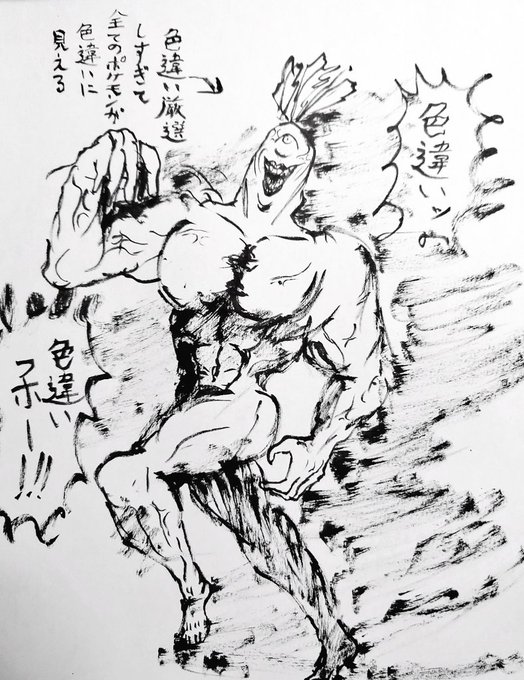 色違い厳選
しすぎて
全てのポケモンが
色違いに
見える
色違いッ!!
色違い
フホー!!!